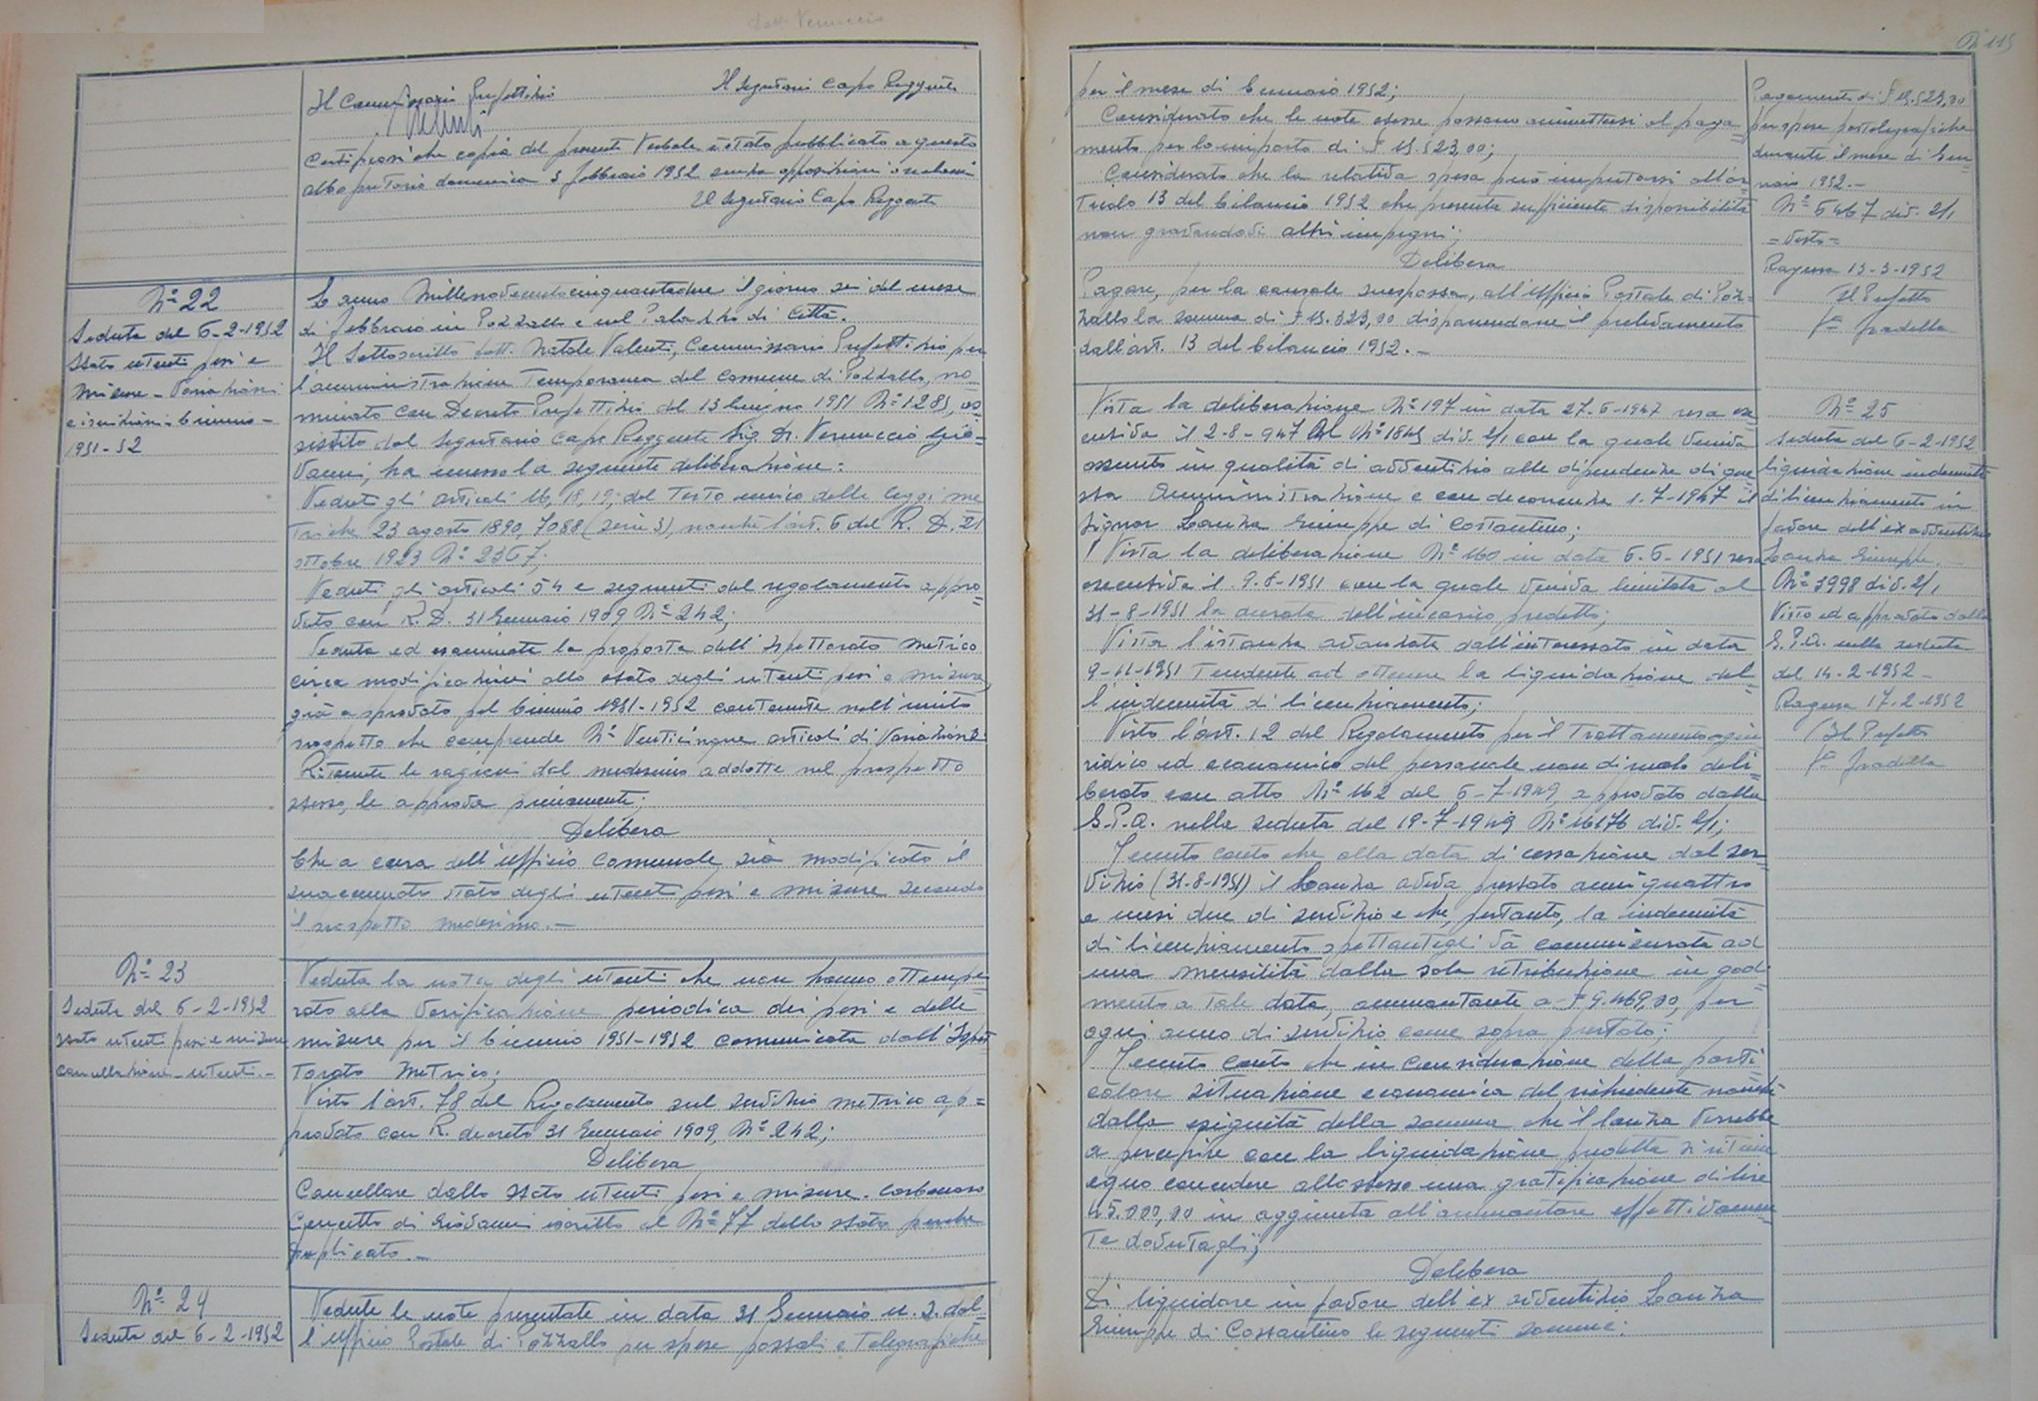 dott. Vernuccio
Il Commissario Prefettizio Il Segretario Capo Reggente
Valenti
Certificasi che copia del presente Verbale è stato pubblicato a questo
albo pretorio domenica 3 febbraio 1952 senza opposizioni o reclami
Il Segretario Capo Reggente
N° 22
Seduta del 6-2-1952
Stato utenti pesi e
misure - Variazioni
e iscrizioni - biennio -
1951-52
L'anno Millenovecentocinquantadue il giorno sei del mese
di febbraio in Pozzallo e nel Palazzo di Città.
Il Sottoscritto dott. Natale Valenti, Commissario Prefettizio per
l'amministrazione Temporanea del Comune di Pozzallo, no=
minato con Decreto Prefettizio del 13 Giugno 1951 N° 1283, as=
sistito dal Segretario Capo Reggente Sig. Dr. Vernuccio Gio=
vanni, ha emesso la seguente deliberazione:
Veduti gli articoli 16, 18, 19, del Testo unico delle leggi me
Triche 23 agosto 1890, 7088 (serie 3), nonchè l'art. 6 del R. D. 21
ottobre 1923 N° 2367;
Veduti gli articoli 54 e seguenti del regolamento appro=
vato con R. D. 31 Gennaio 1909 N° 242;
Veduta ed esaminata la proposta dell'Ispettorato metrico
circa modificazioni allo stato degli utenti pesi e misure,
già approvato pel biennio 1951-1952 contenute nell'unito
prospetto che comprende N° Venticinque articoli di Variazioni.
Ritenute le ragioni del medesimo addotte nel prospetto
stesso, le approva pienamente;
Delibera
Che a cura dell'Ufficio Comunale sia modificato il
suaccennato stato degli utenti pesi e misure secondo
il prospetto medesimo. -
N° 23
Seduta del 6-2-1952
Stato utenti pesi e misure
cancellazione - utenti. -
Veduta la nota degli utenti che non hanno ottempe=
rato alla Verificazione periodica dei pesi e delle
misure per il biennio 1951-1952 comunicata dall'Ispet
torato Metrico;
Visto l'art. 78 del Regolamento sul servizio metrico ap=
provato con R. decreto 31 Gennaio 1909, N° 242;
Delibera
Cancellare dallo stato utenti pesi e misure. Carbonaro
Concetto di Giovanni iscritto al N° 77 dello stato perchè
duplicato. -
N° 24
Seduta del 6-2-1952
Vedute le note presentate in data 31 Gennaio u. s. dal=
l'Ufficio Postale di Pozzallo per spese postali e Telegrafiche
N° 115
per il mese di Gennaio 1952;
Considerato che le note stesse possono ammettersi al paga=
mento per lo importo di £ 15.523,00;
Considerato che la relativa spesa può imputarsi all'ar=
ticolo 13 del bilancio 1952 che presenta sufficiente disponibilità
non gravandovi altri impegni;
Delibera
Pagare, per la causale suesposta, all'Ufficio Postale di Poz=
zallo la somma di £ 15.523,00 disponendone il prelevamento
dall'art. 13 del bilancio 1952. -
Pagamento di £ 15.523,00
per spese postelegrafiche
durante il mese di Gen=
naio 1952. -
N° 5467 div. 2/1
= Visto =
Ragusa 13-3-1952
Il Prefetto
f° Gradella
Vista la deliberazione N° 197 in data 27-6-1947 resa ese
cutiva il 2-8-947 al N° 1845 div. 2/1 con la quale veniva
assunto in qualità di avventizio alle dipendenze di que
sta Amministrazione e con decorrenza 1-7-1947 il
Signor Lanza Giuseppe di Costantino;
Vista la deliberazione N° 160 in data 6-6-1951 resa
esecutiva il 9-8-1951 con la quale veniva limitata al
31-8-1951 la durata dell'incarico predetto;
Vista l'istanza avanzata dall'interessato in data
9-11-1951 Tendente ad ottenere la liquidazione del=
l'indennità di licenziamento;
Visto l'art. 12 del Regolamento per il Trattamento giu
ridico ed economico del personale non di ruolo deli=
berato con atto N° 162 del 6-7-1949, approvato dalla
G.P.A. nella seduta del 19-7-1949 N° 16176 div. 2/1;
Tenuto conto che alla data di cessazione dal ser=
vizio (31-8-1951) il Lanza aveva prestato anni quattro
e mesi due di servizio e che, pertanto, la indennità
di licenziamento spettantegli va commisurata ad
una mensilità dalla sola retribuzione in godi=
mento a tale data, ammontante a £ 9.469,00, per
ogni anno di servizio come sopra prestato;
Tenuto conto che in considerazione della parti
colare situazione economica del richiedente nonchè
dalla esiguità della somma che il Lanza verrebbe
a percepire con la liquidazione predetta si ritiene
equo concedere allo stesso una gratificazione di lire
45.000,00 in aggiunta all'ammontare effettivamen=
te dovutagli;
Delibera
Di liquidare in favore dell'ex avventizio Lanza
Giuseppe di Costantino le seguenti somme:
N° 25
Seduta del 6-2-1952
liquidazione indennità
di licenziamento in
favore dell'ex avventizio
Lanza Giuseppe. -
N° 3998 div. 2/1
Visto ed approvato dalla
G.P.A. nella seduta
del 14-2-1952 -
Ragusa 17-2-1952
Il Prefetto
f° Gradella